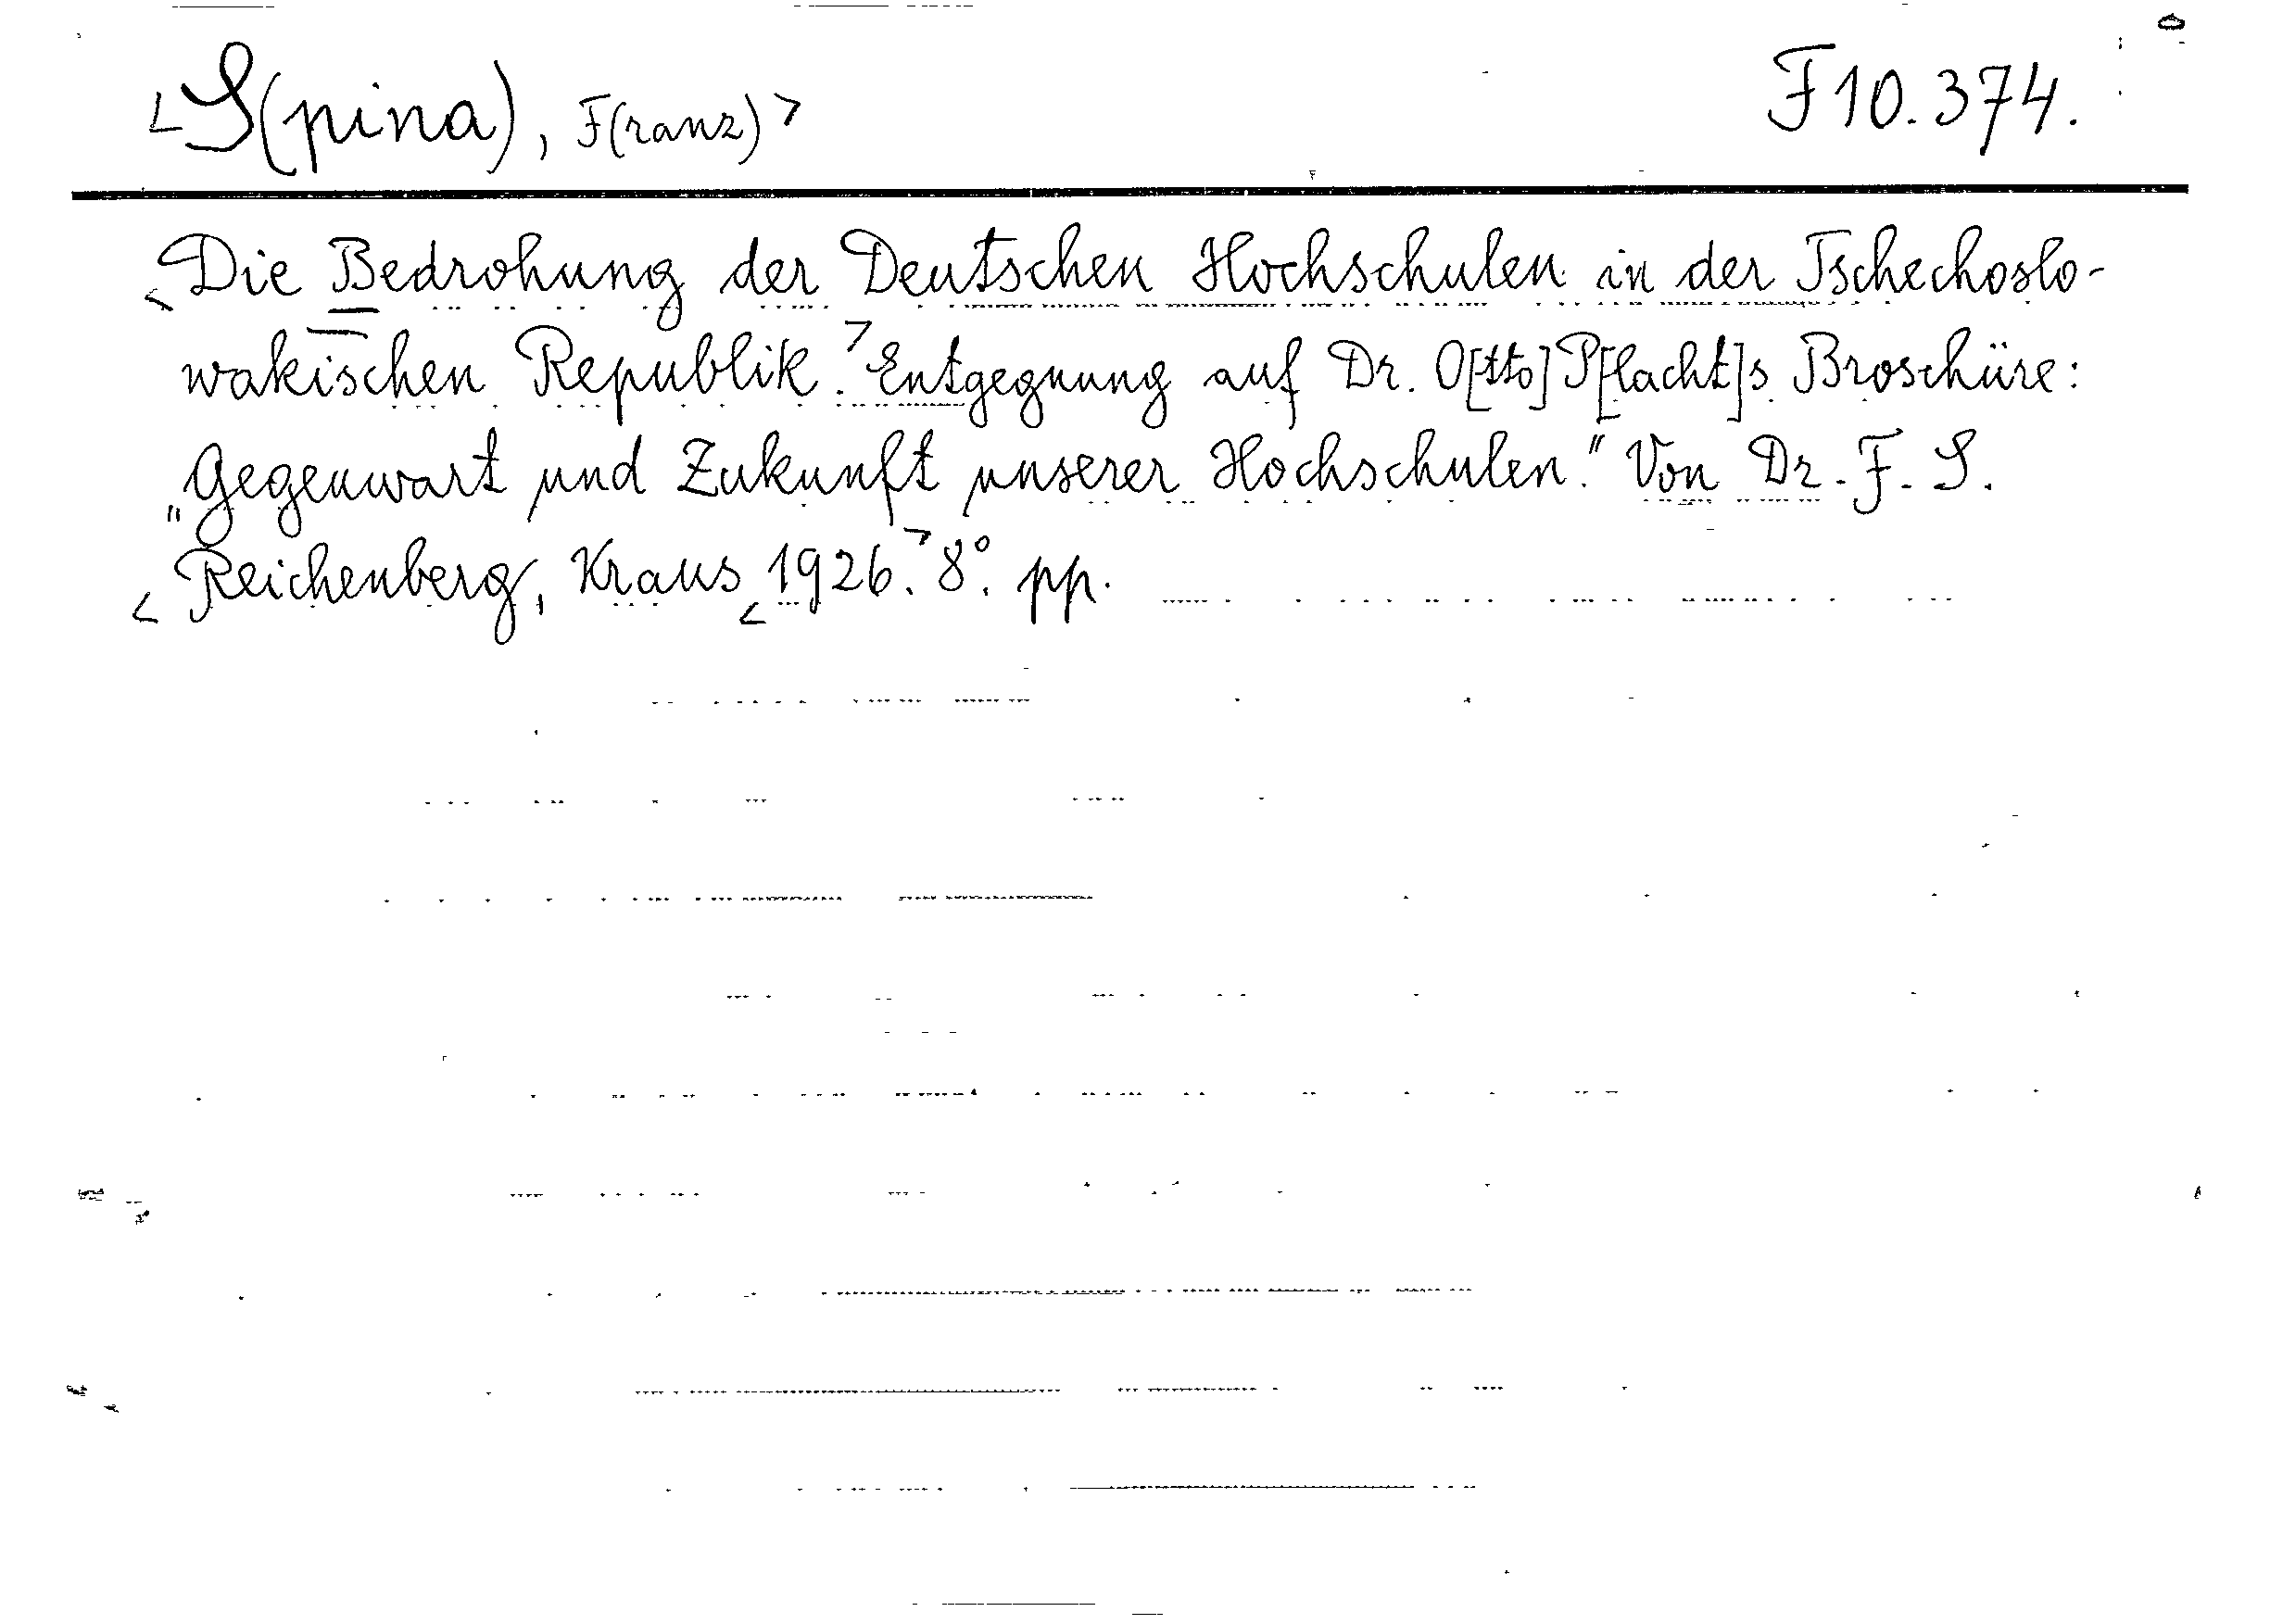 <S(pina), F(ranz)> F 10.374.
<Die Bedrohung der Deutschen Hochschulen in der Tschechoslo-
wakischen Republik.> Entgegnung auf Dr. O[tto] P[flacht]s Broschüre:
"Gegenwart und Zukunft unserer Hochschulen." Von Dr. F. S.
<Reichenberg, Kraus <1926.> 8°. pp.